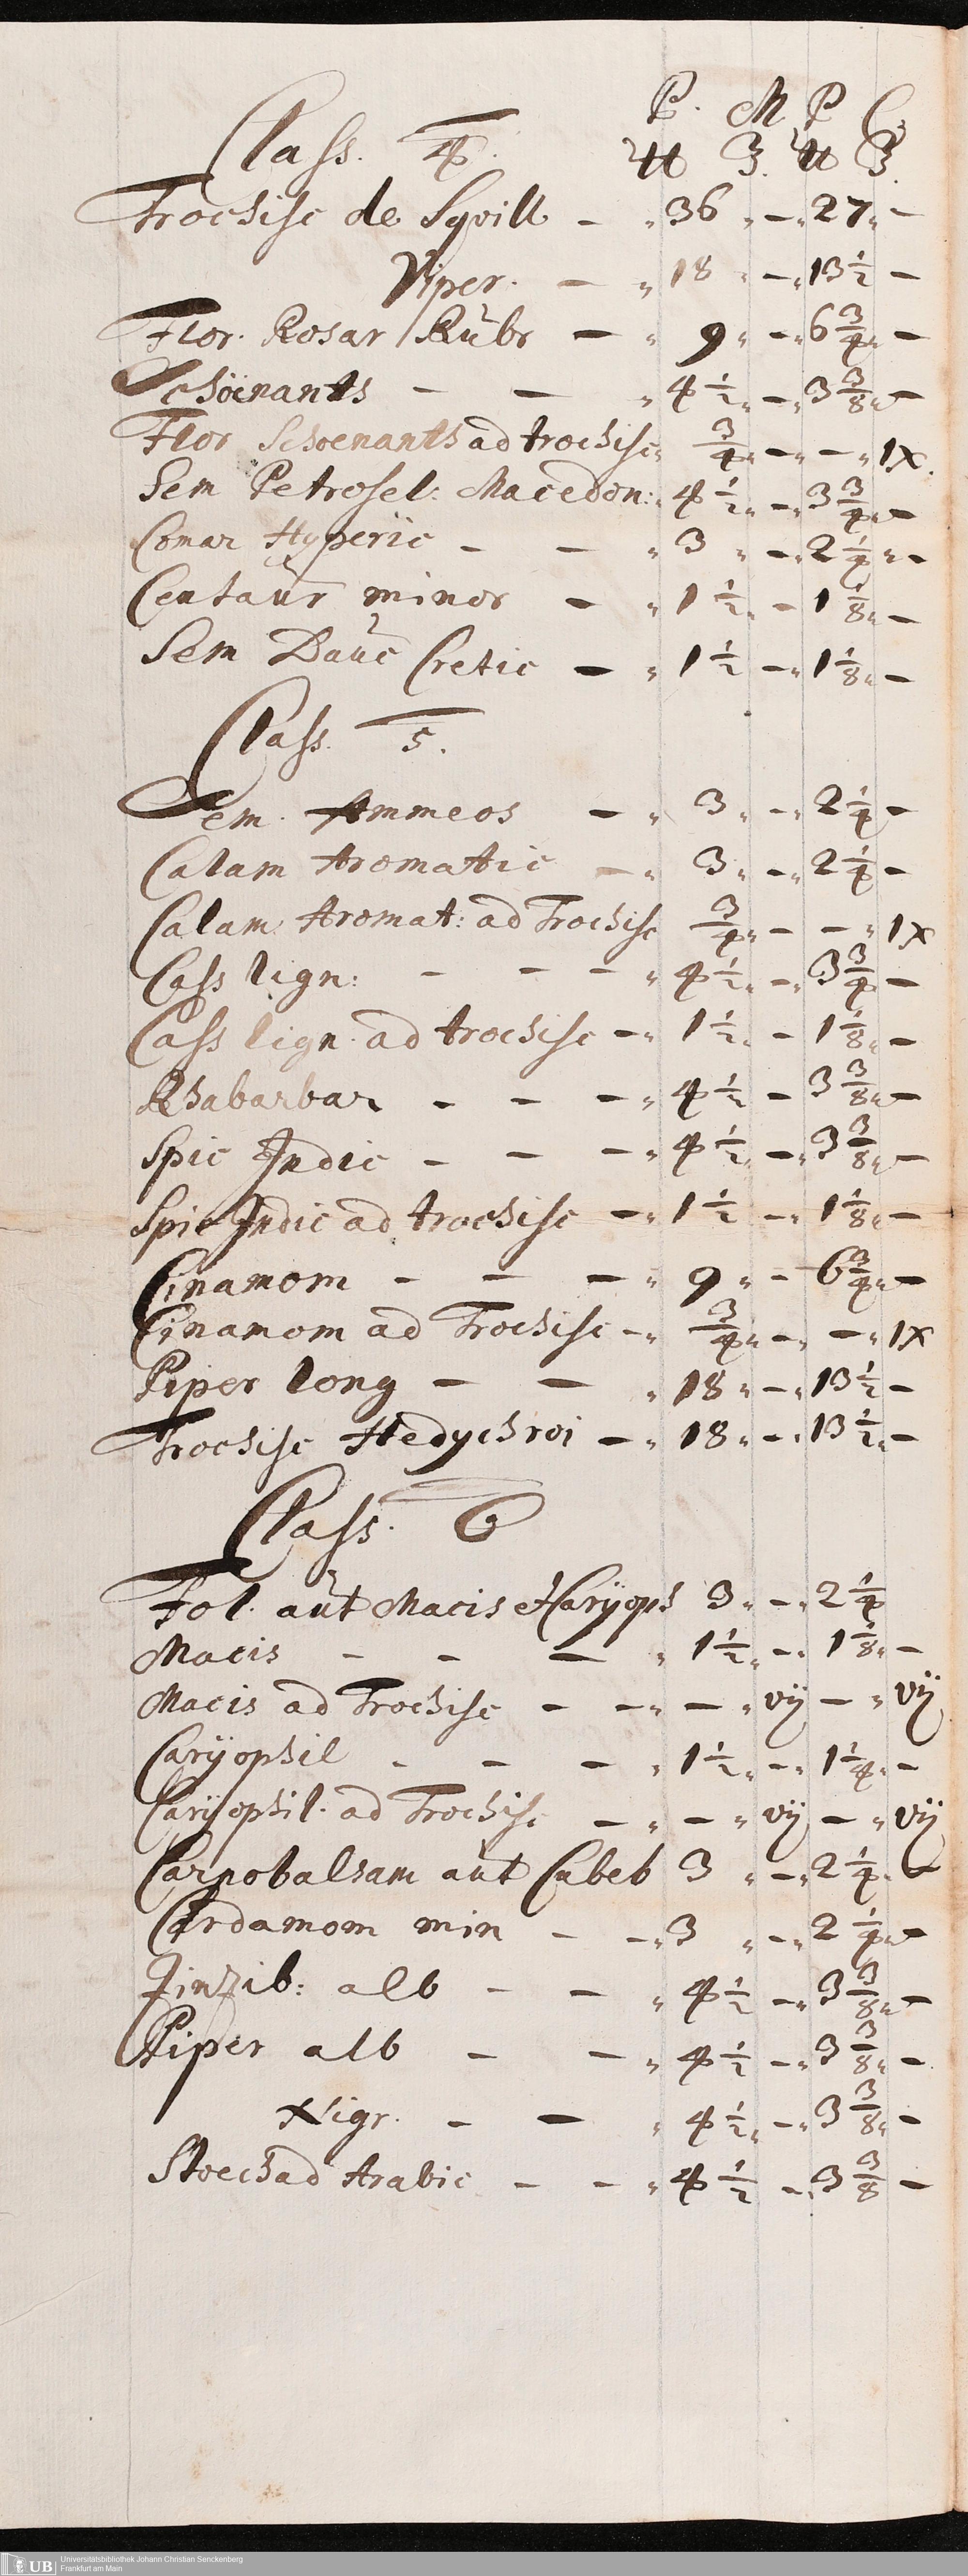 P. M. P C.
Class. 4. ℔ ʒ. ℔ ʒ.
Trochisc de Sqvill — „ 36 „ — „ 27 „ —
Viper. — „ 18 „ — „ 13 1/2 —
Flor. Rosar Rubr — „ 9 „ — „ 6 3/4 „ —
Schoenanth — — „ 4 1/2 „ — „ 3 3/8 „ —
Flor Schoenanth ad trochisc „ 3/4 „ — „ — „ 1x.
Sem Petrosel: Macedon: „ 4 1/2 „ — „ 3 3/4 „ —
Comar Hyperic — — „ 3 „ — „ 2 1/4 „ —
Centaur minor — „ 1 1/2 „ — 1 1/8 „ —
Sem Dauc Cretic — „ 1 1/2 — „ 1 1/8 „ —
Class. 5.
Sem. Ammeos — „ 3 „ — „ 2 1/4 —
Calam Aromatic — „ 3 „ — „ 2 1/4 —
Calam Aromat: ad Trochisc 3/4 „ — — „ 1x
Cass lign: — — — „ 4 1/2 „ — „ 3 3/4 —
Cass lign. ad trochisc — „ 1 1/2 „ — 1 1/8 „ —
Rhabarbar — — — „ 4 1/2 — 3 3/8 „ —
Spic Indic — — — „ 4 1/2 „ — „ 3 3/8 „ —
Spic Indic ad trochisc — „ 1 1/2 — „ 1 1/8 „ —
Cinamom — — — „ 9 „ — 6 3/4 „ —
Cinamom ad Trochisc — „ 3/4 „ — „ — „ 1x
Piper long — — „ 18 „ — „ 13 1/2 —
Trochisc Hedychroi — „ 18 „ — „ 13 1/2 „ —
Class. 6
Fol. aut Macis et Caryoph 3 „ — „ 2 1/4
Macis — — — „ 1 1/2 „ — „ 1 1/8 „ —
Macis ad Trochisc — — „ — „ vij — „ vij
Caryophil — — — „ 1 1/2 „ — „ 1 1/4 „ —
Caryophil. ad Trochisc — „ — „ vij — „ vij
Carpobalsam aut Cubeb 3 „ — „ 2 1/4 „ —
Cardamom min — — „ 3 „ — „ 2 1/4 „ —
Zinzib: alb — — „ 4 1/2 — „ 3 3/8 „ —
Piper alb — — „ 4 1/2 — „ 3 3/8 „ —
Nigr. — — „ 4 1/2 „ — „ 3 3/8 „ —
Stoechad Arabic — — „ 4 1/2 — „ 3 3/8 —
UB Universitätsbibliothek Johann Christian Senckenberg
Frankfurt am Main